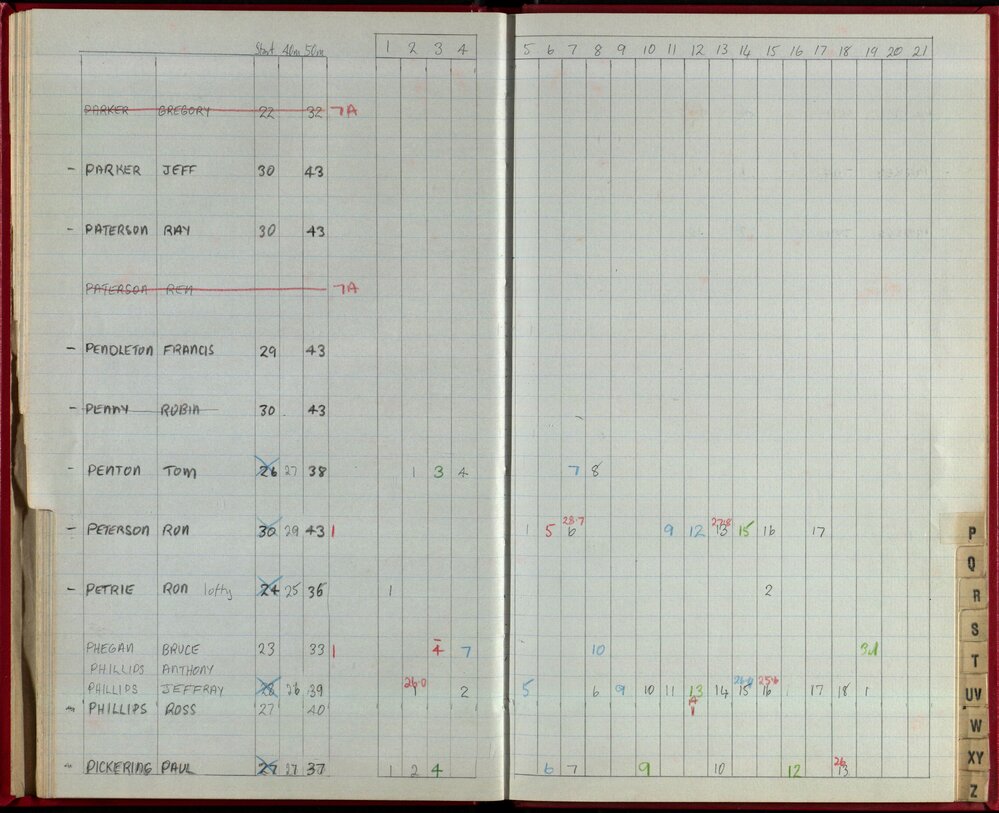 Start 40m 50m 1 2 3 4 5 6 7 8 9 10 11 12 13 14 15 16 17 18 19 20 21
PARKER GREGORY 22 32 7A
- PARKER JEFF 30 43
- PATERSON RAY 30 43
PATERSON REN 7A
- PENDLETON FRANCIS 29 43
- PENNY ROBIN 30 43
- PENTON TOM 26 27 38 1 3 4 7 8
28.7 27.8
- PETERSON RON 30 29 43 1 1 5 6 9 12 13 15 16 17
- PETRIE RON lofty 24 25 36 1 2
PHEGAN BRUCE 23 33 1 4 7 10
PHILLIPS ANTHONY
26.0 26.0 25.6
PHILLIPS JEFFRAY 28 26 39 1 2 5 6 9 10 11 13 14 15 16 17 18 1
- PHILLIPS ROSS 27 40
26
- PICKERING PAUL 27 27 37 1 2 4 6 7 9 10 12 13
P
Q
R
S
T
UV
W
XY
Z